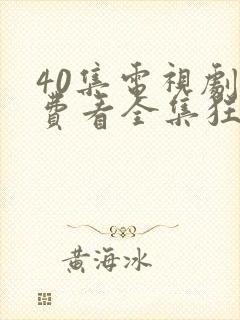 40集電視劇
費看全集狂
黃海冰